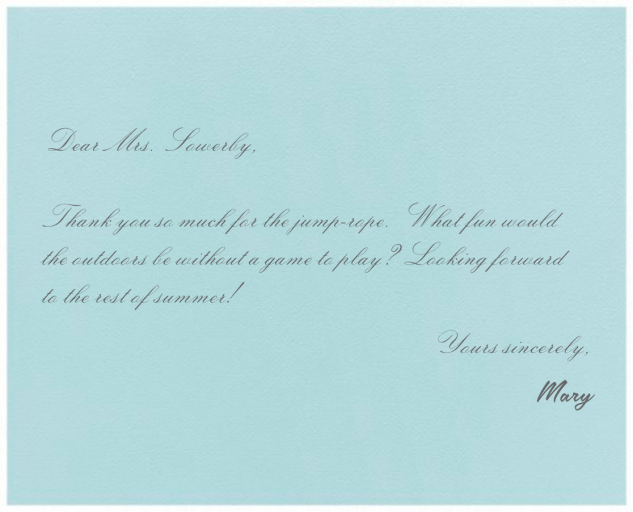 Dear Mrs. Sowerby,
Thank you so much for the jump-rope. What fun would
the outdoors be without a game to play? Looking forward
to the rest of summer!
Yours sincerely,
Mary